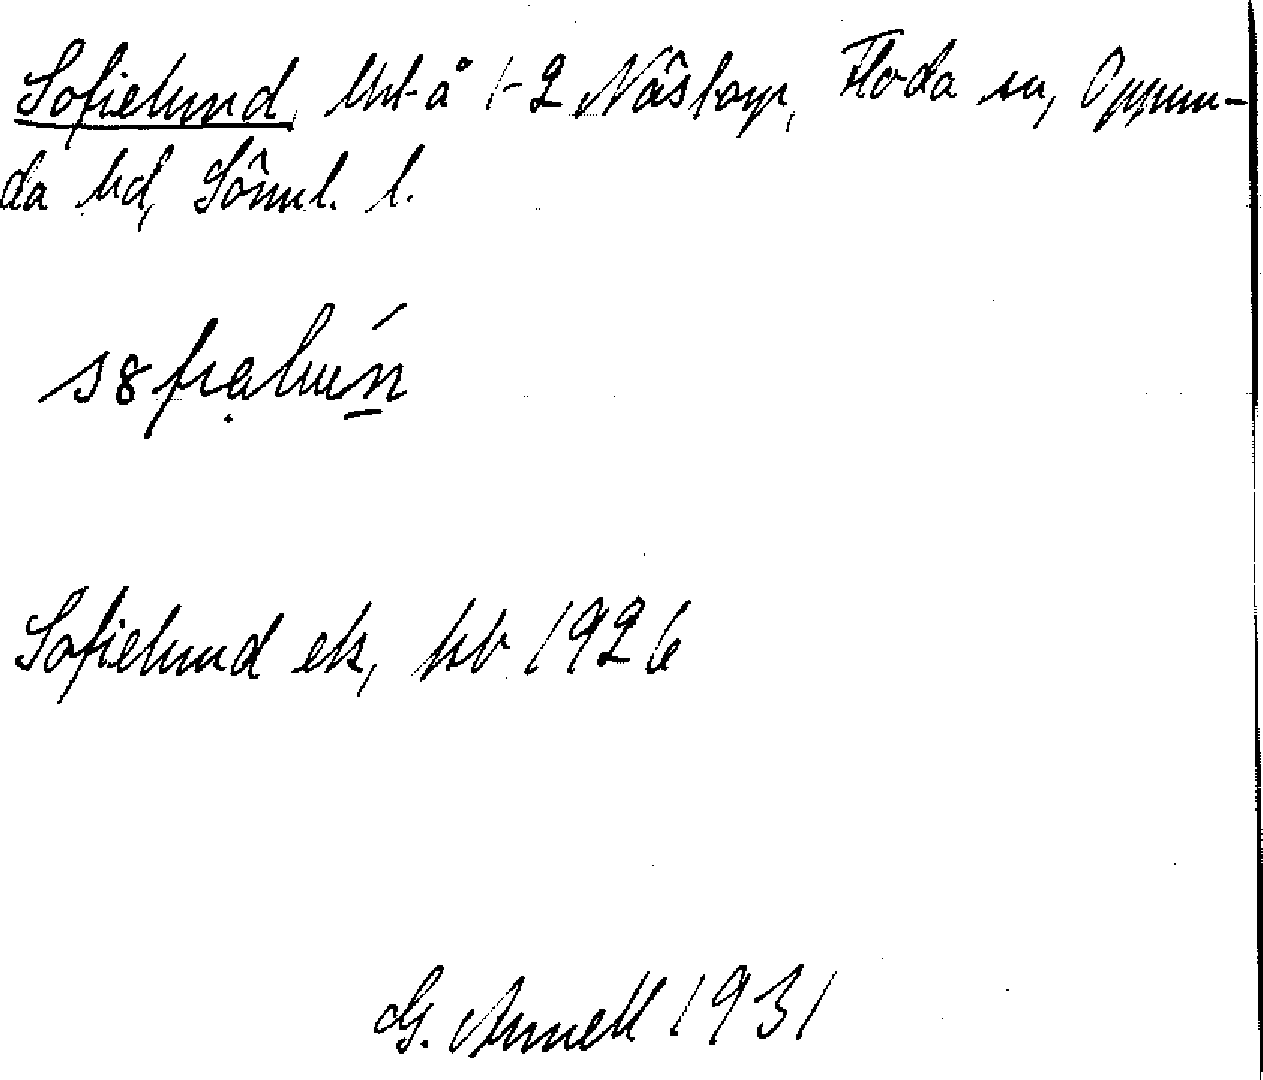 Sofielund, lht å 1-2 Nästorp, Floda sn, Oppun-
da hd, Sörml. l.
Sofielund ek, kb 1926
G. Arnell 1931